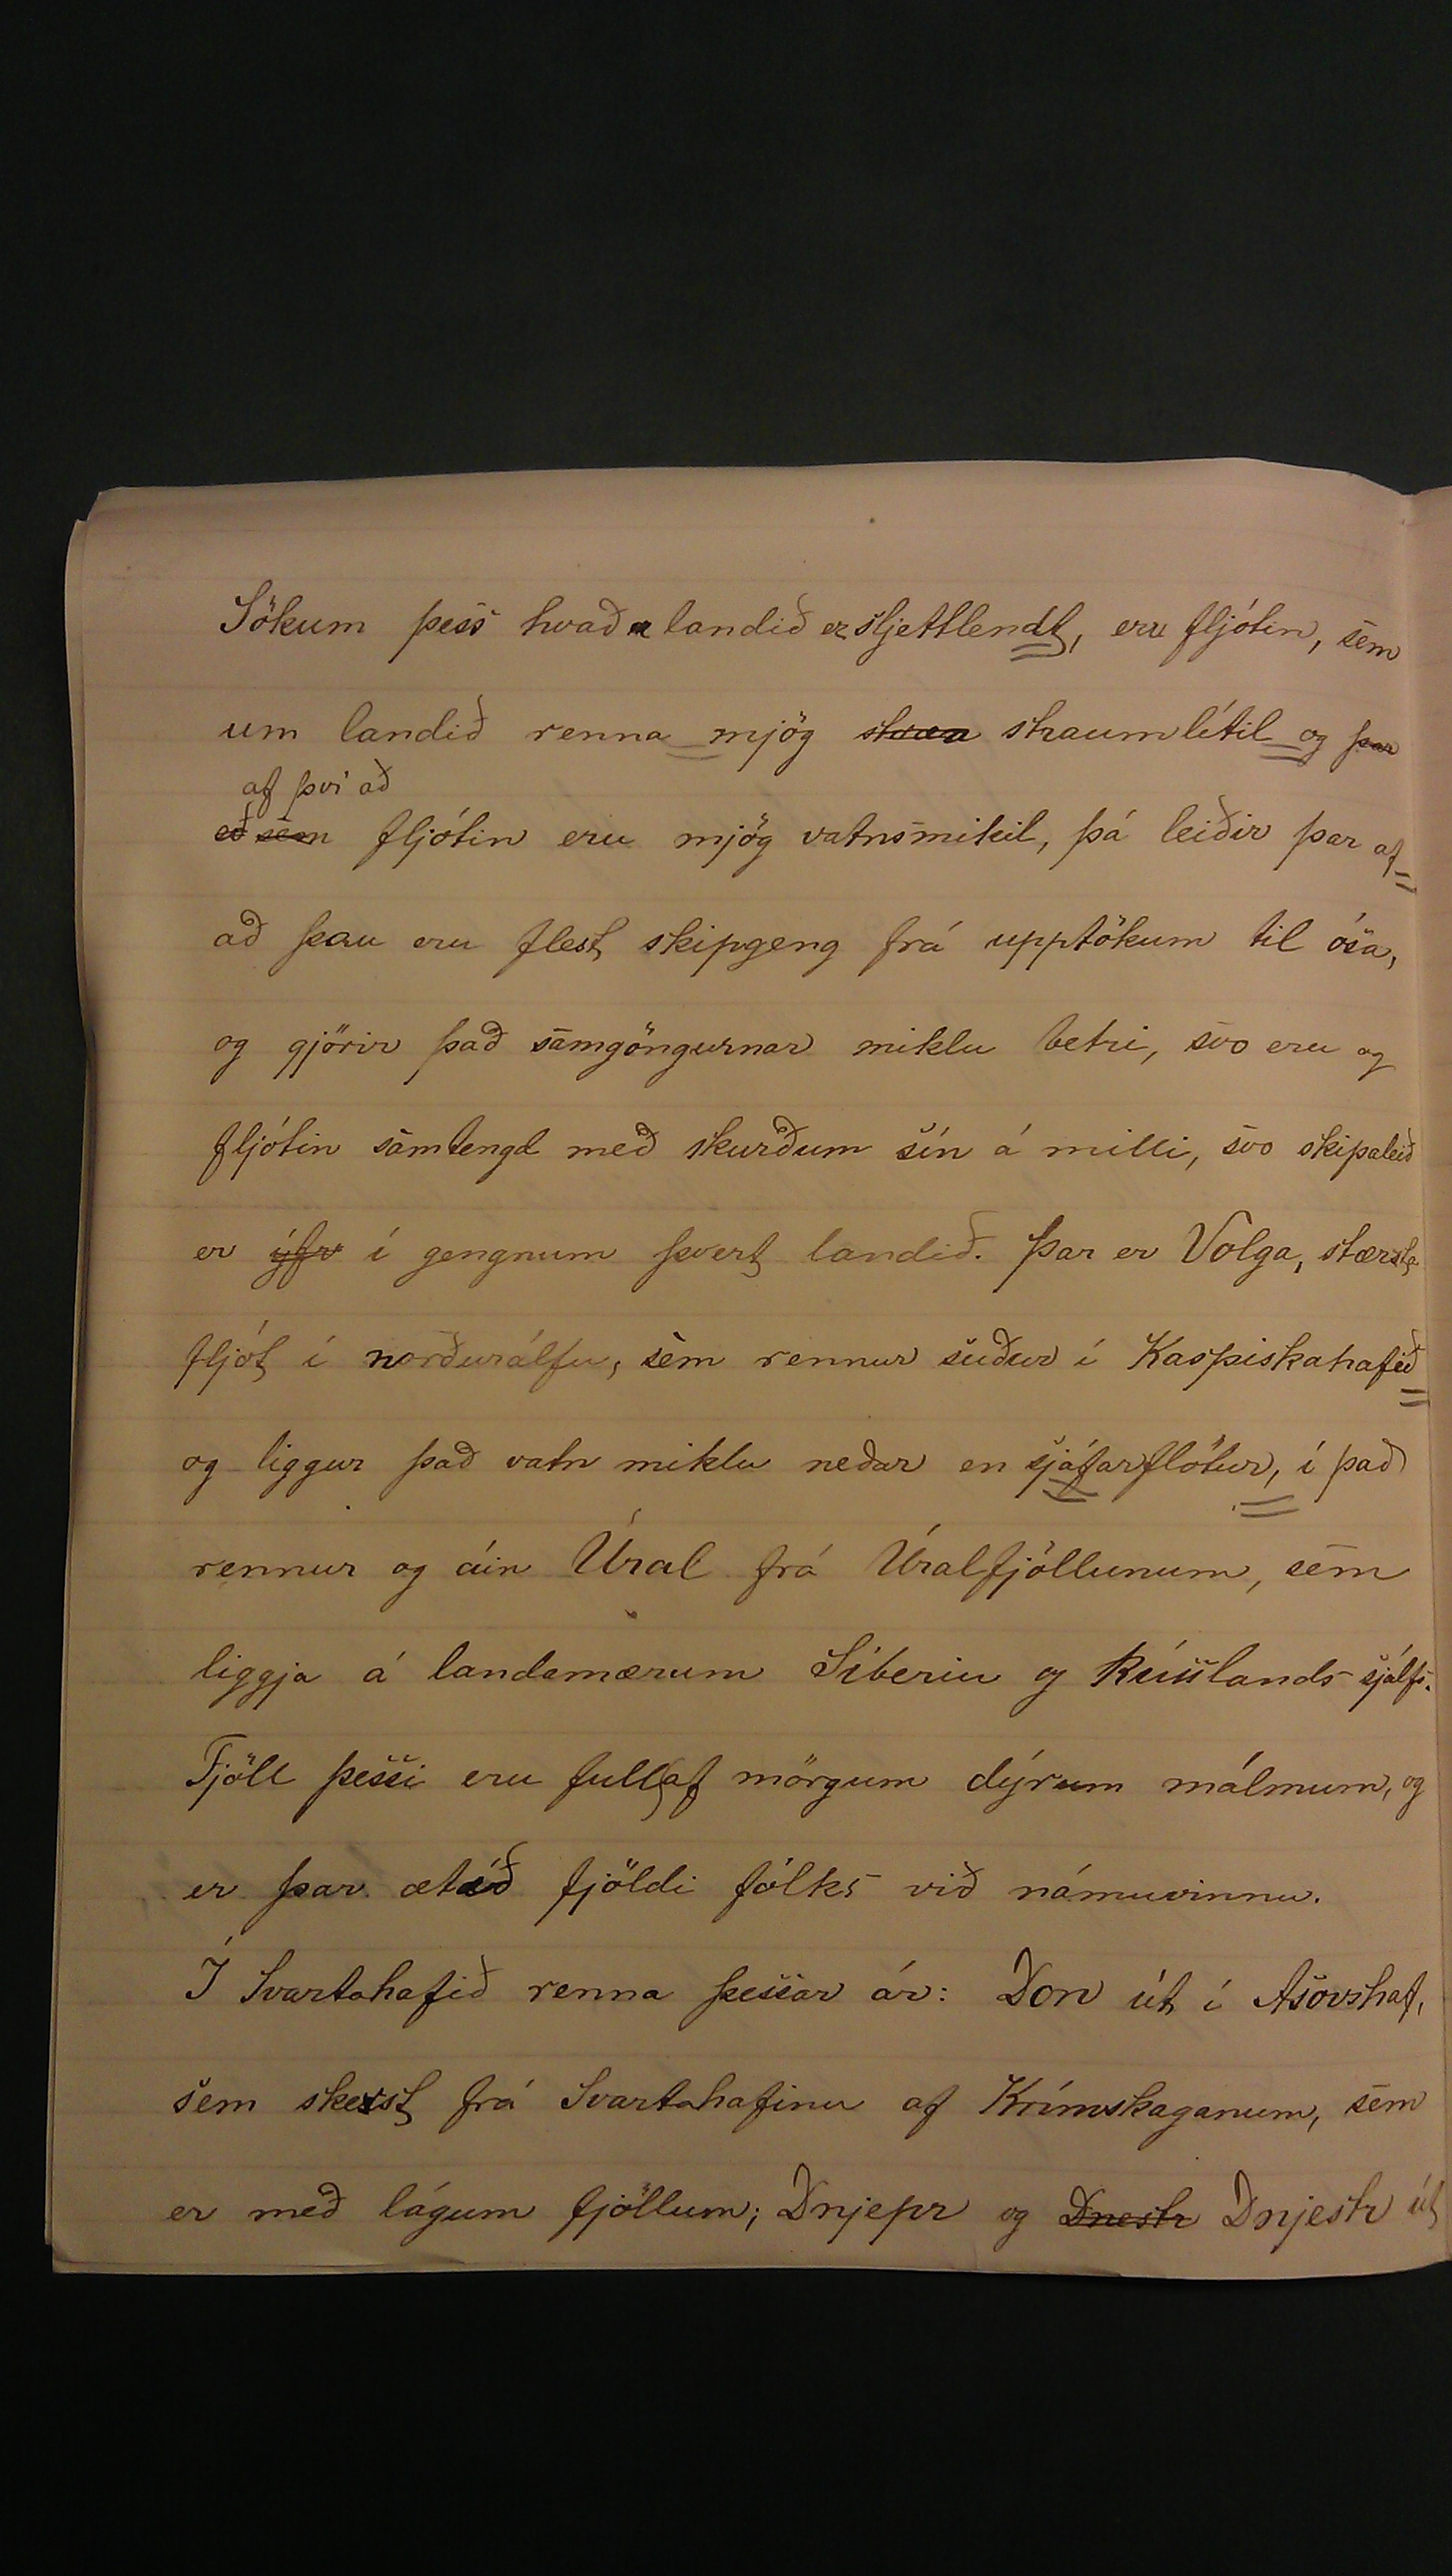 Sökum þess hvað landið er sljettlendt, eru fljótin, sem
um landið renna mjög straumlítil og þar
af því að
eð sem fljótin eru mjög vatnsmikil, þá leiðir þar af
að þau eru flest skipgeng frá upptökum til ósa,
og gjörir það samgöngurnar miklu betri, svo eru og
fljótin samtengd með skurðum sín á milli, svo skipaleið
er yfir í gengnum þvert landið. Þar er Volga, stærsta
fljót í norðurálfu, sem rennur suður í Kaspiskahafið
og liggur það vatn miklu neðar en sjáfarflötur, í það
rennur og áin Úral frá Úralfjöllunum, sem
liggja á landamærum Síberiu og Rússlands sjálfs.
Fjöll þessi eru full af mörgum dýrum málmum, og
er þar ætíð fjöldi fólks við námuvinnu.
Í Svartahafið renna þessar ár: Don út í Asovshaf,
sem skerst frá Svartahafinu af Krímskaganum, sem
er með lágum fjöllum; Dnjepr og Dnestr Dnjestr út